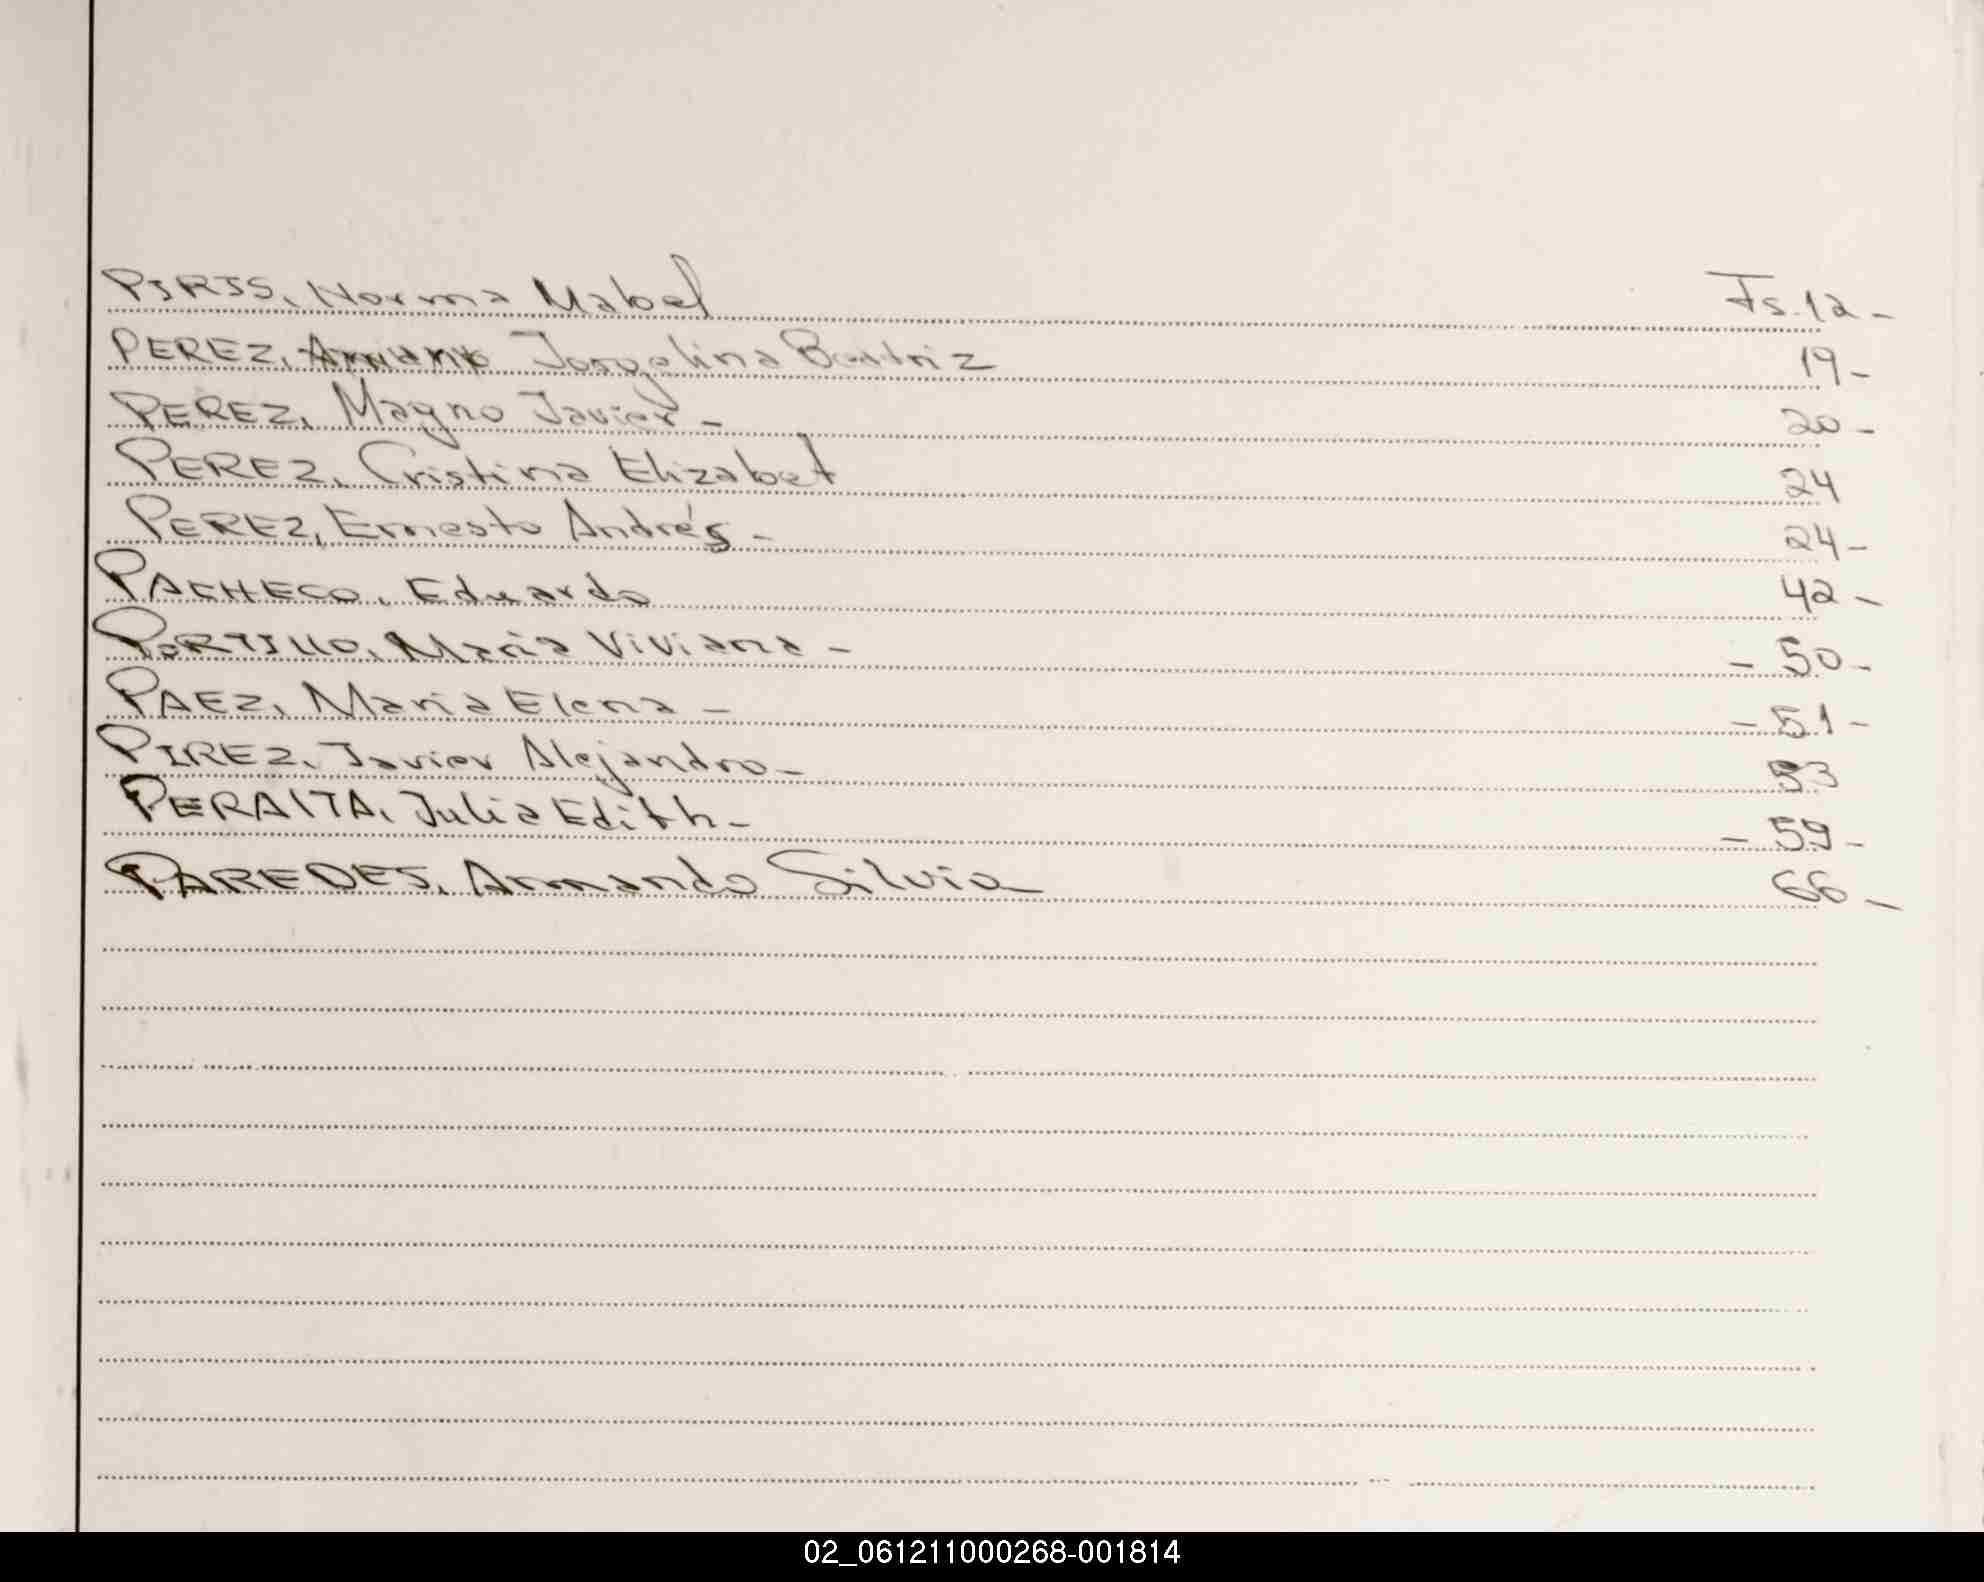 PIRIS, Norma Mabel Fs. 12 -
PEREZ, Jorgelina Beatriz 19 -
PEREZ, Magno Javier - 20 -
PEREZ, Cristina Elizabet 24
PEREZ, Ernesto Andrés - 24 -
PACHECO, Eduardo 42 -
PORTILLO, Maria Viviana - - 50 -
PAEZ, Maria Elena - - 51 -
PIREZ, Javier Alejandro - 53
PERALTA, Julia Edith - - 59 -
PAREDES, Armando Silvio 66 -
02_061211000268-001814